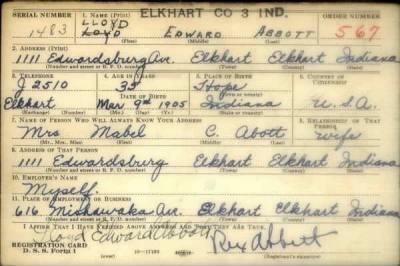 SERIAL NUMBER 1. NAME (Print) ELKHART CO 3 IND. ORDER NUMBER
LLOYD
1483 LOYD EDWARD ABBOTT 567
(First) (Middle) (Last)
2. ADDRESS (Print)
1111 Edwardsburg Av. Elkhart Elkhart Indiana
(Number and street or R. F. D. number) (Town) (County) (State)
3. TELEPHONE 4. AGE IN YEARS 5. PLACE OF BIRTH 6. COUNTRY OF CITIZENSHIP
J 2510 35 Hope
DATE OF BIRTH (Town or county)
Elkhart Mar 9th 1905 Indiana U.S.A.
(Exchange) (Number) (Mo.) (Day) (Yr.) (State or country)
7. NAME OF PERSON WHO WILL ALWAYS KNOW YOUR ADDRESS 8. RELATIONSHIP OF THAT PERSON
Mrs Mabel C. Abott wife
(Mr., Mrs., Miss) (First) (Middle) (Last)
9. ADDRESS OF THAT PERSON
1111 Edwardsburg Elkhart Elkhart Indiana
(Number and street or R. F. D. number) (Town) (County) (State)
10. EMPLOYER'S NAME
Myself.
11. PLACE OF EMPLOYMENT OR BUSINESS
616 Mishawaka Av. Elkhart Elkhart Indiana
(Number and street or R. F. D. number) (Town) (County) (State)
I AFFIRM THAT I HAVE VERIFIED ABOVE ANSWERS AND THAT THEY ARE TRUE.
Lloyd Edward Abbott
REGISTRATION CARD Rex Abbett
D. S. S. FORM 1